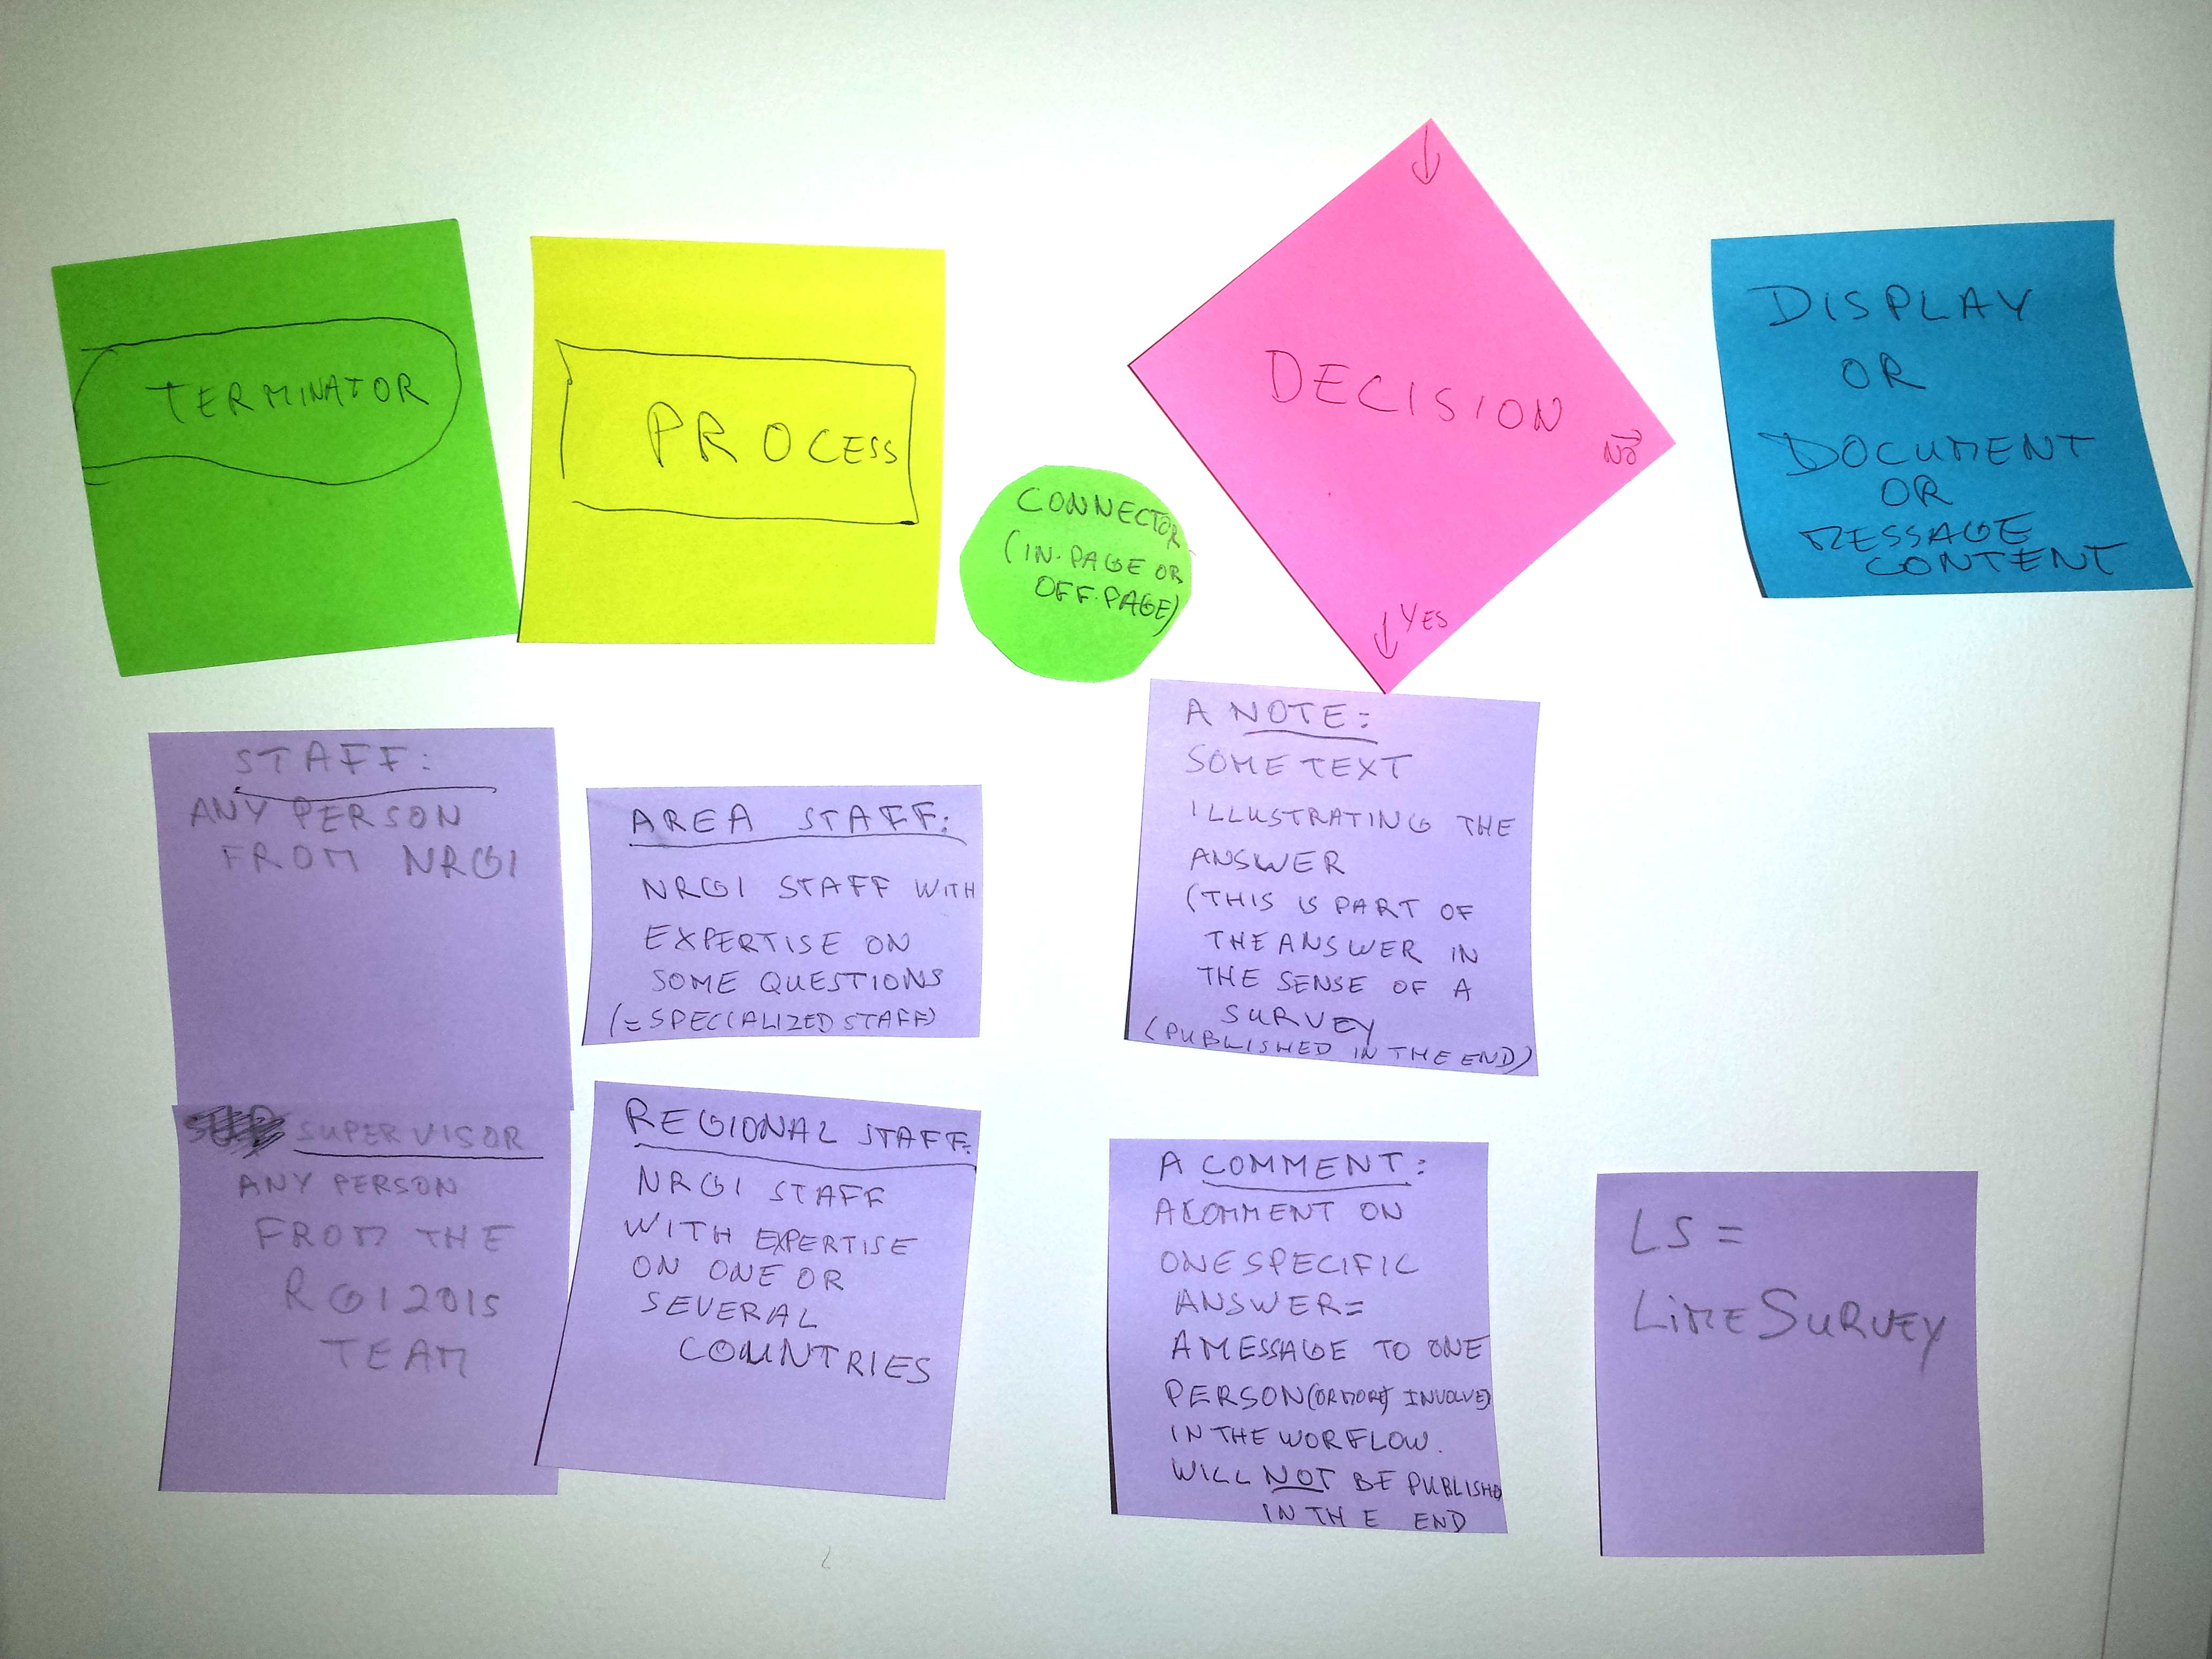 TERMINATOR
PROCESS
CONNECTOR
(IN-PAGE OR
OFF-PAGE)
DECISION
NO
YES
DISPLAY
OR
DOCUMENT
OR
MESSAGE
CONTENT
STAFF:
ANY PERSON
FROM NRGI
AREA STAFF:
NRGI STAFF WITH
EXPERTISE ON
SOME QUESTIONS
(=SPECIALIZED STAFF)
A NOTE:
SOME TEXT
ILLUSTRATING THE
ANSWER
(THIS IS PART OF
THE ANSWER IN
THE SENSE OF A
SURVEY
(PUBLISHED IN THE END)
SUPERVISOR
ANY PERSON
FROM THE
RGI2015
TEAM
REGIONAL STAFF:
NRGI STAFF
WITH EXPERTISE
ON ONE OR
SEVERAL
COUNTRIES
A COMMENT:
A COMMENT ON
ONE SPECIFIC
ANSWER=
A MESSAGE TO ONE
PERSON (OR MORE) INVOLVE)
IN THE WORFLOW.
WILL NOT BE PUBLISHD
IN THE END
LS =
LIMESURVEY